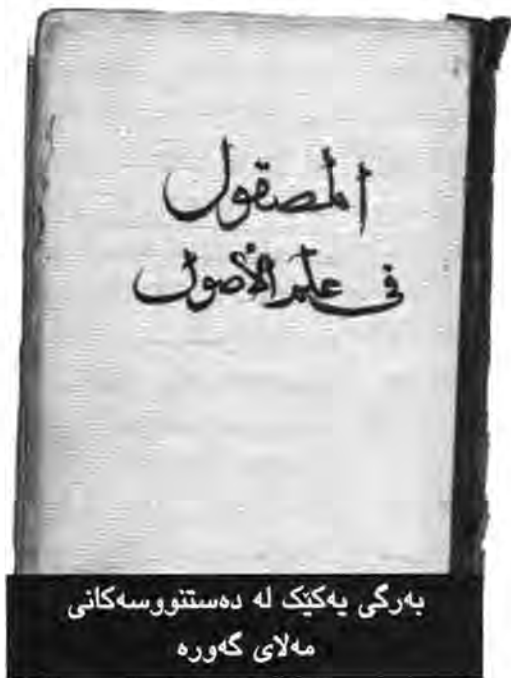 المصقول
في علم الأصول
بەرگی یەکێک لە دەستنووسەکانی
مەلای گەورە